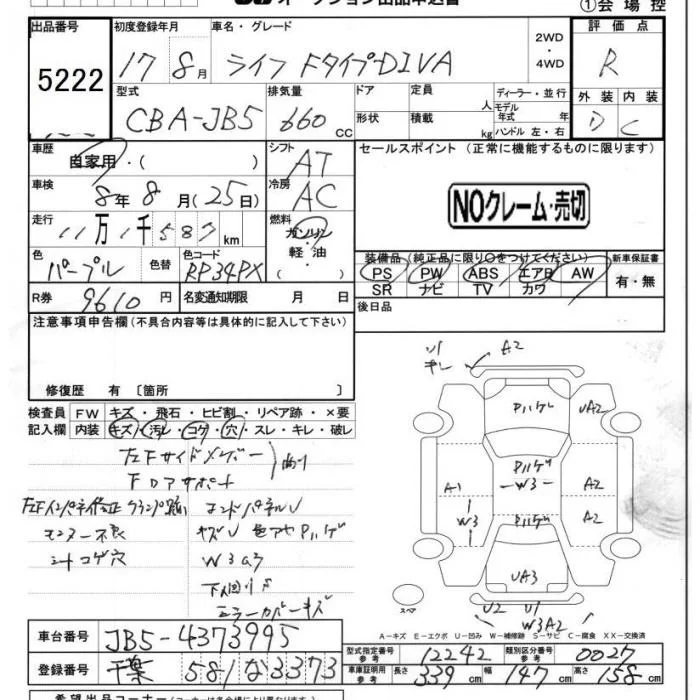 オークション出品申込書
①会場控
出品番号 初度登録年月 車名・グレード 2WD ・ 4WD 評価点
5222 17 8月 ライフ FタイプDIVA R
型式 排気量 ドア 定員 人 ディーラー・並行 外装 内装
CBA-JB5 660 cc 形状 積載 kg モデル年式 年 ハンドル 左・右 D C
車歴 シフト セールスポイント (正常に機能するものに限ります)
自家用・( ) AT
車検 冷房
8年8月(25日) AC NOクレーム・売切
走行 燃料
11万1千587km ガソリン 軽油 ・( )
装備品 (純正品に限り○をつけてください) 新車保証書
色 色替 色コード PS PW ABS エアB AW 有・無
パープル RP34PX SR ナビ TV カワ
R券 9610円 名変通知期限 月 日 後日品
注意事項申告欄(不具合内容等は具体的に記入して下さい)
修復歴 有 〔箇所 〕
検査員 FW キズ・飛石・ヒビ割・リペア跡・×要
記入欄 内装 キズ・汚レ・コゲ・穴・スレ・キレ・破レ
左Fサイドメンバー
曲り
コゲ穴
W3あり
下回りサビ
ミラーカバーキズ
U1
A2
Pハゲ
UA2
Pハゲ
W3
A1
A2
W3
Pハゲ
A2
UA3
U2 U1
W3A2
スペア
A-キズ E-エクボ U-凹み W-補修跡 S-サビ C-腐食 XX-交換済
車台番号 JB5-4373995
型式指定番号 参考 12242 類別区分番号 参考 0027
登録番号 千葉 581 な 3373
車庫証明用 参考 長さ 339cm 幅 147cm 高さ 158cm
希望出品コーナー